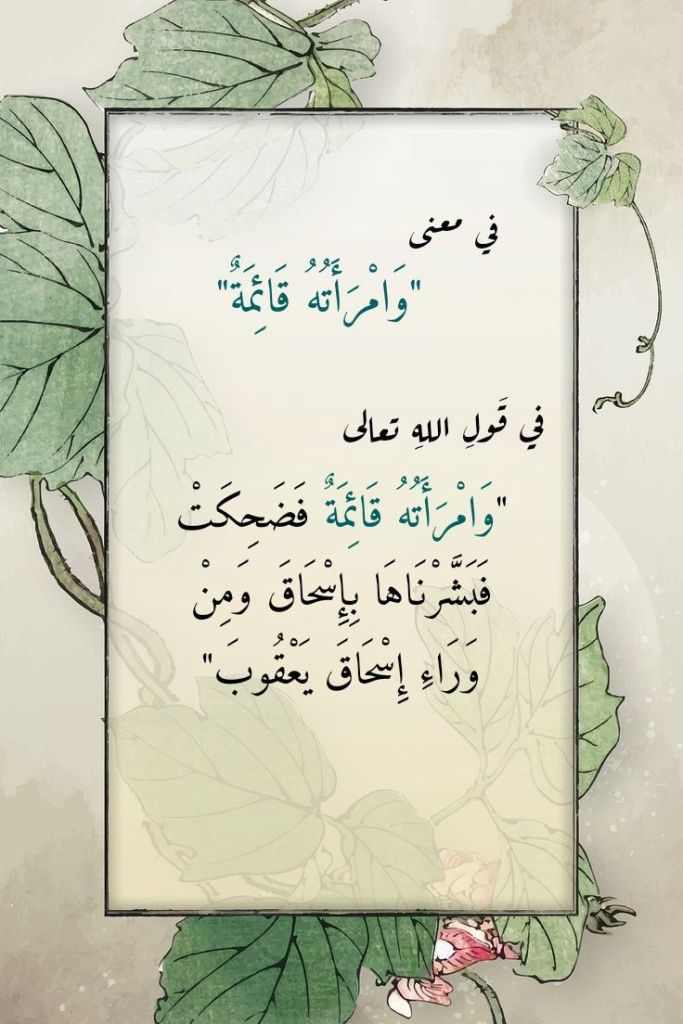 في معنى
"وَامْرَأَتُهُ قَائِمَةٌ"
في قَولِ اللهِ تعالى
"وَامْرَأَتُهُ قَائِمَةٌ فَضَحِكَتْ
فَبَشَّرْنَاهَا بِإِسْحَاقَ وَمِنْ
وَرَاءِ إِسْحَاقَ يَعْقُوبَ"